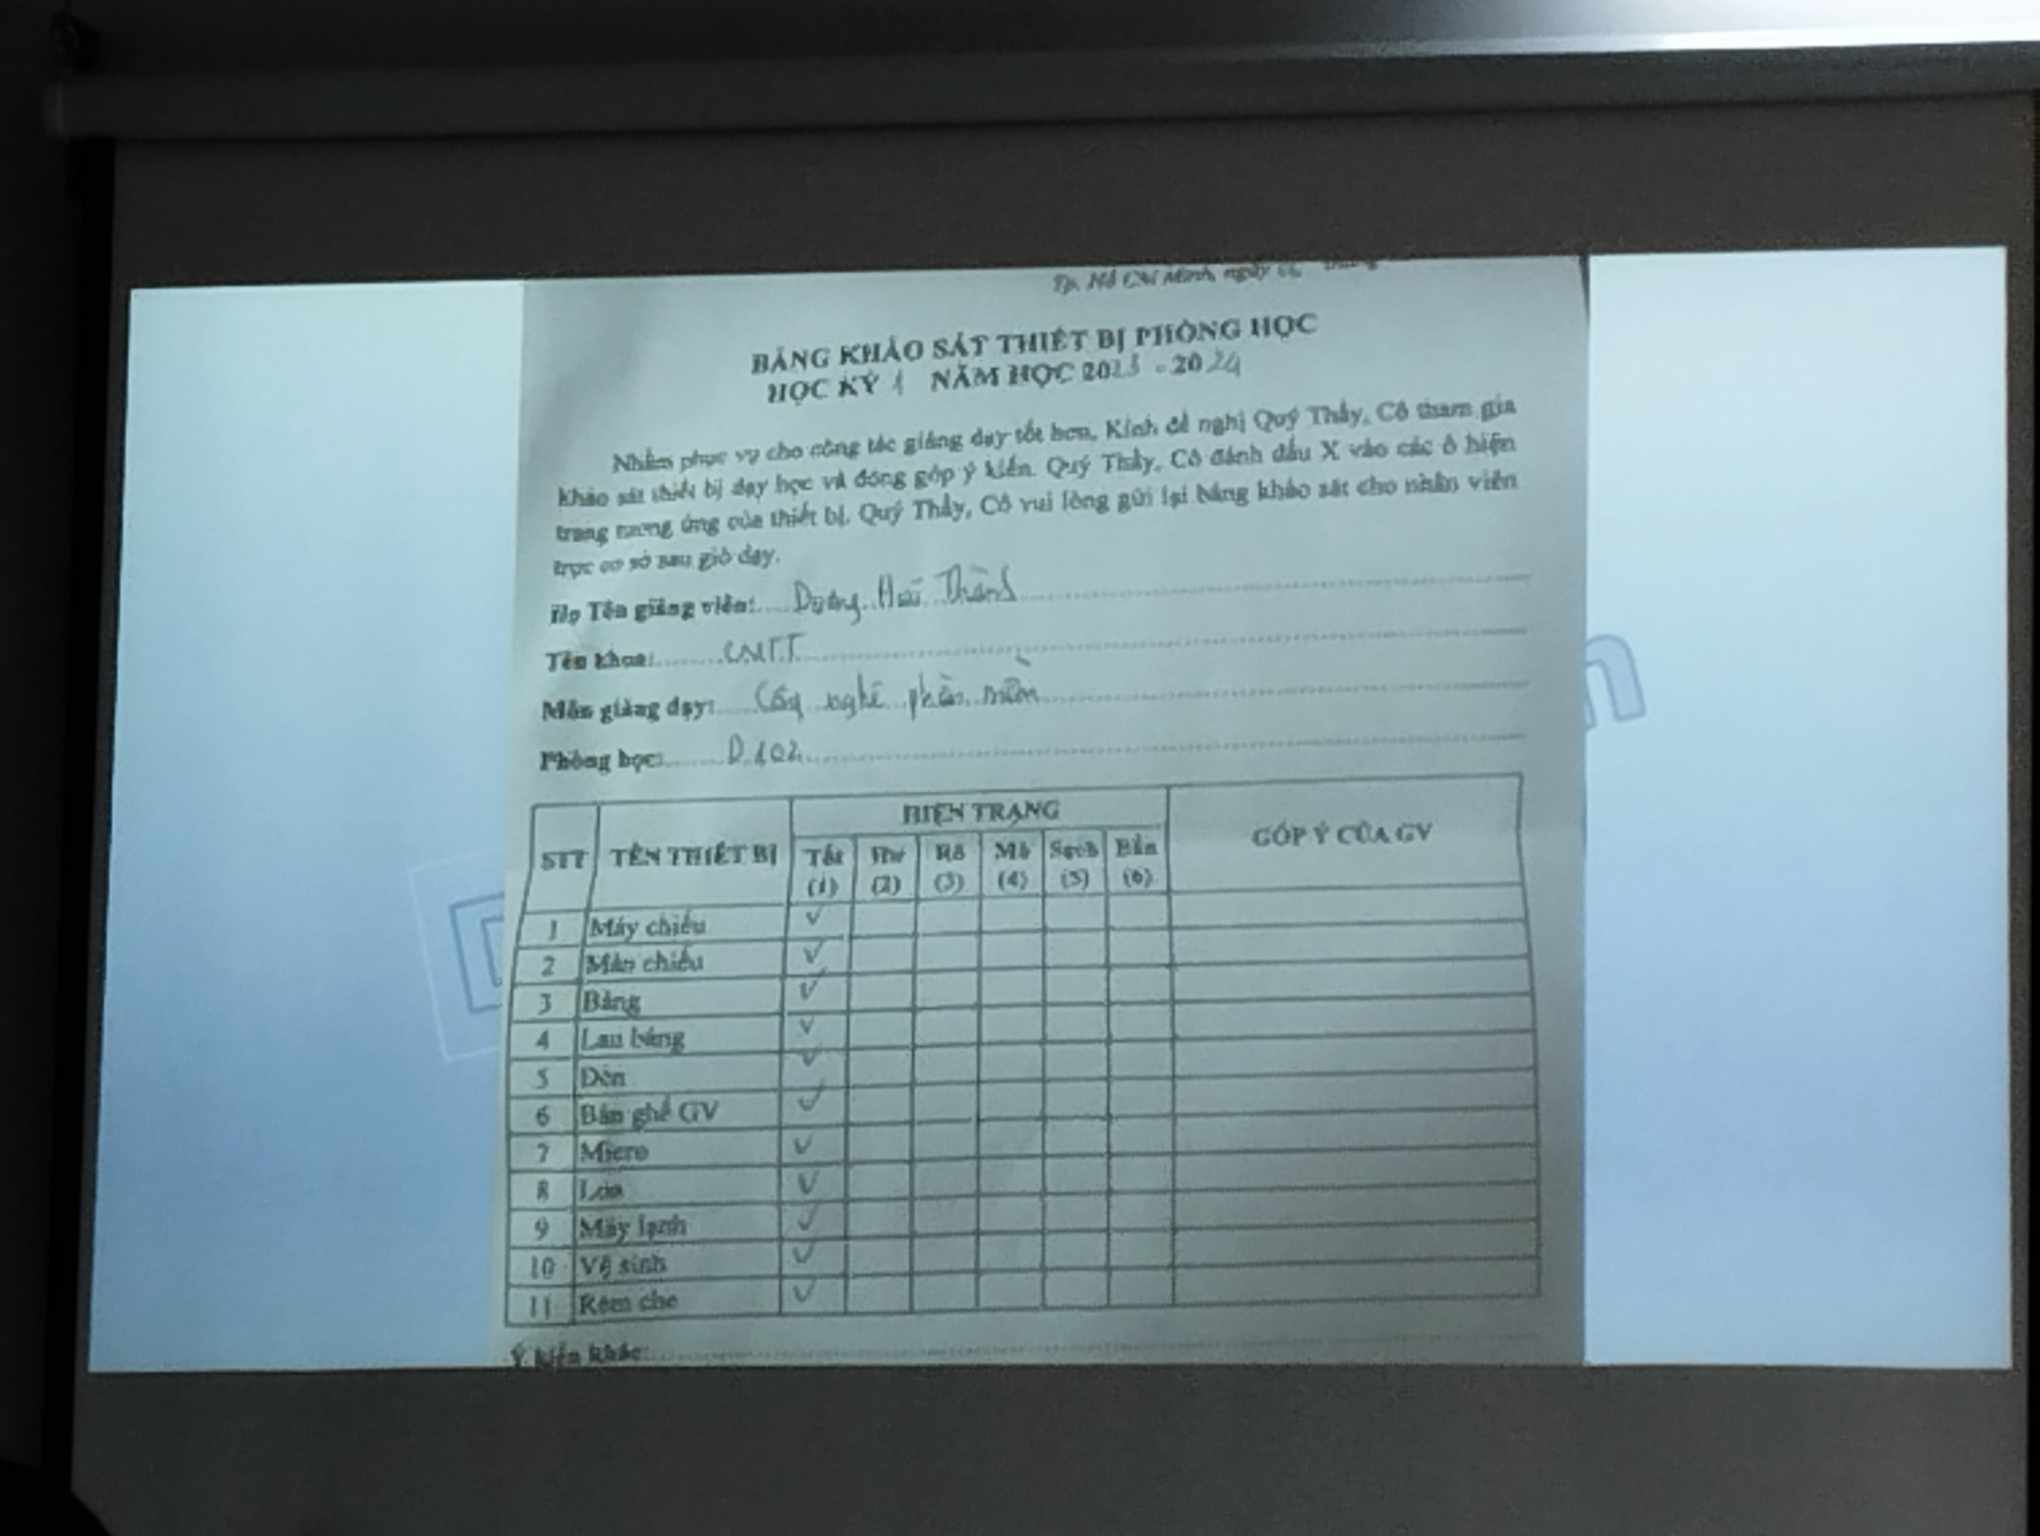 Tp. Hồ Chí Minh, ngày
BẢNG KHẢO SÁT THIẾT BỊ PHÒNG HỌC
HỌC KỲ 1 NĂM HỌC 2023 - 2024
Nhằm phục vụ cho công tác giảng dạy tốt hơn, Kính đề nghị Quý Thầy, Cô tham gia
khảo sát thiết bị dạy học và đóng góp ý kiến. Quý Thầy, Cô đánh dấu X vào các ô hiện
trạng tương ứng của thiết bị. Quý Thầy, Cô vui lòng gửi lại bảng khảo sát cho nhân viên
trực cơ sở sau giờ dạy.
Họ Tên giảng viên: Dương Hữu Thành
Tên khoa: CNTT
Môn giảng dạy: Công nghệ phần mềm
Phòng học: D.102
STT TÊN THIẾT BỊ HIỆN TRẠNG GÓP Ý CỦA GV
Tốt (1) Hư (2) Rõ (3) Mờ (4) Sạch (5) Bẩn (6)
1 Máy chiếu ✓
2 Màn chiếu ✓
3 Bảng ✓
4 Lau bảng ✓
5 Đèn ✓
6 Bàn ghế GV ✓
7 Micro ✓
8 Loa ✓
9 Máy lạnh ✓
10 Vệ sinh ✓
11 Rèm che ✓
Ý kiến khác: